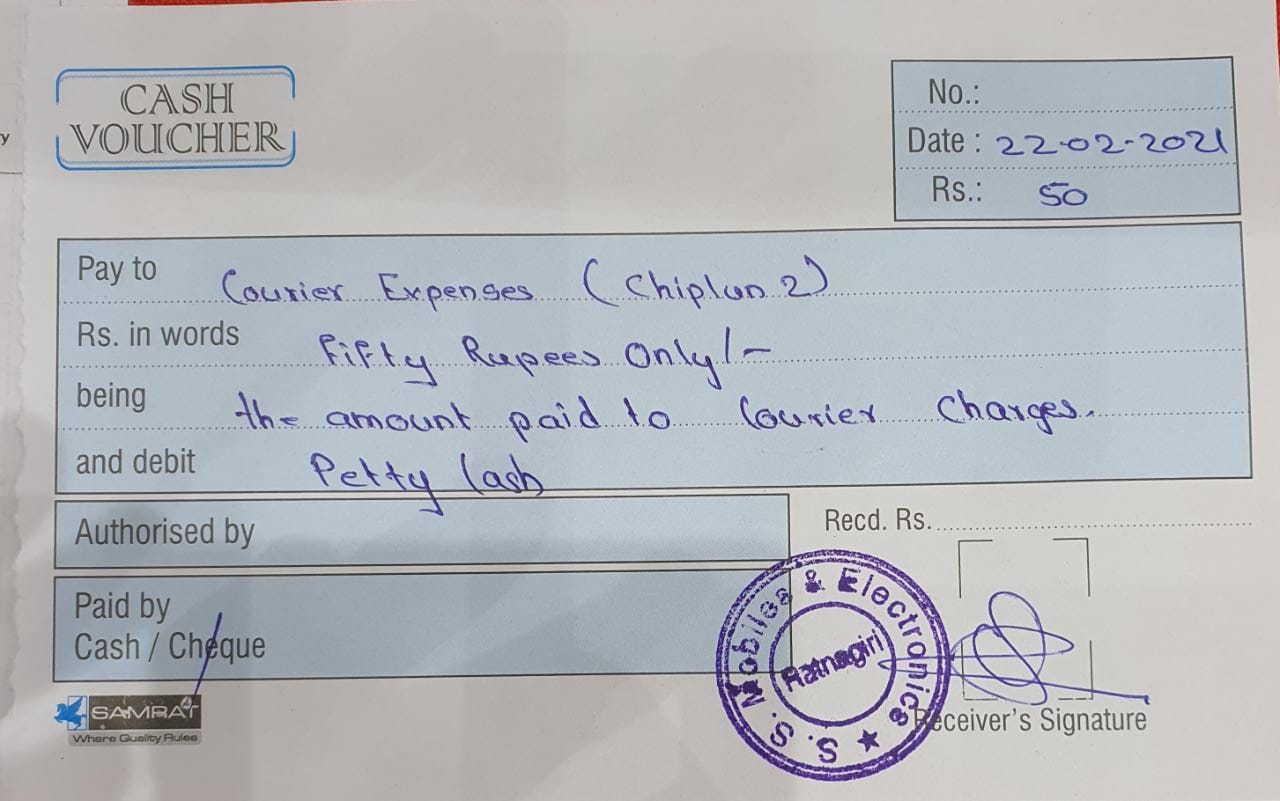 y
CASH
VOUCHER
No.:
Date : 22-02-2021
Rs.: 50
Pay to Courier Expenses (Chiplun 2)
Rs. in words Fifty Rupees Only/-
being the amount paid to Courier Charges.
and debit Petty Cash
Authorised by
Recd. Rs.
Paid by
Cash / Cheque
S. S. Mobiles & Electronics ★
Ratnagiri
Receiver's Signature
SAMRAT
Where Quality Rules